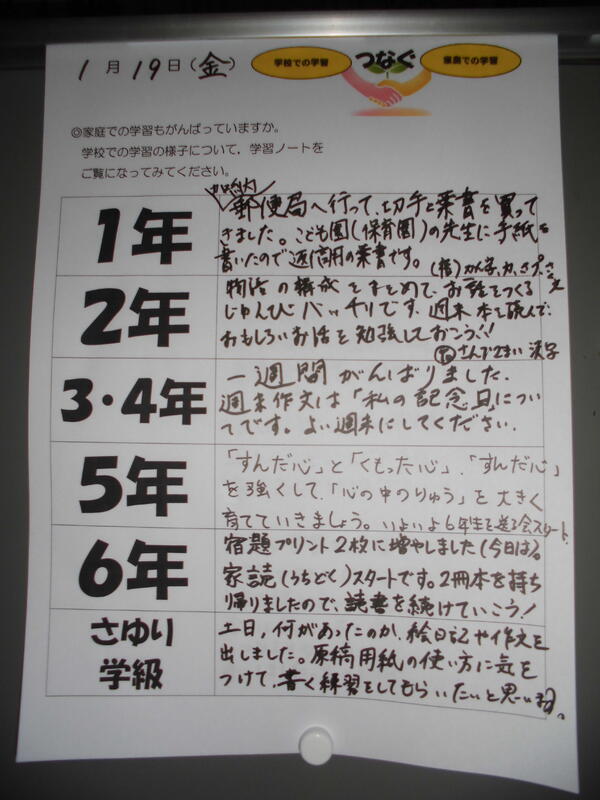 1月19日(金)
学校での学習
つなぐ
家庭での学習
◎家庭での学習もがんばっていますか。
学校での学習の様子について、学習ノートを
ご覧になってみてください。
1年
郵便局へ行って、切手と葉書を買って
きました。こども園(保育園)の先生に手紙を
書いたので返信用の葉書です。
2年
物語の構成をまとめて、お話をつくる
じゅんびバッチリです。週末本を読んで、
おもしろいお話を勉強しておこう!!
さんすう2まい 漢字
3・4年
一週間がんばりました。
週末作文は「私の記念日」につい
てです。よい週末にしてください。
5年
「すんだ心」と「くもった心」、「すんだ心」
を強くして、「心の中のりゅう」を大きく
育てていきましょう。いよいよ6年生を送る会スタート
6年
宿題プリント2枚に増やしました(今日は)。
家読(うちどく)スタートです。2冊本を持ち
帰りましたので、読書を続けていこう!
さゆり
学級
土日、何があったのか、絵日記や作文を
出しました。原稿用紙の使い方に気を
つけて、書く練習をしてもらいたいと思います。